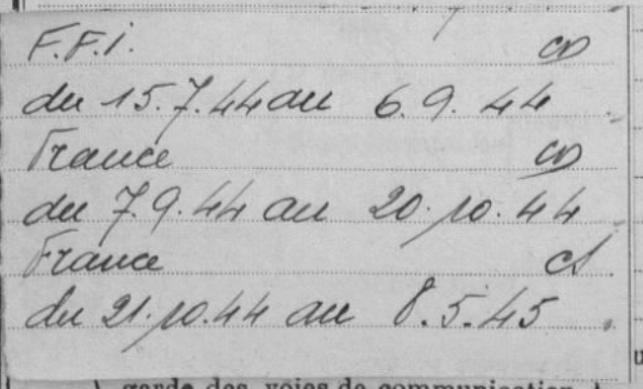 F.F.i. CD
du 15.7.44 au 6.9.44
France CD
du 7.9.44 au 20.10.44
France CS
du 21.10.44 au 8.5.45
garde des voies de communication